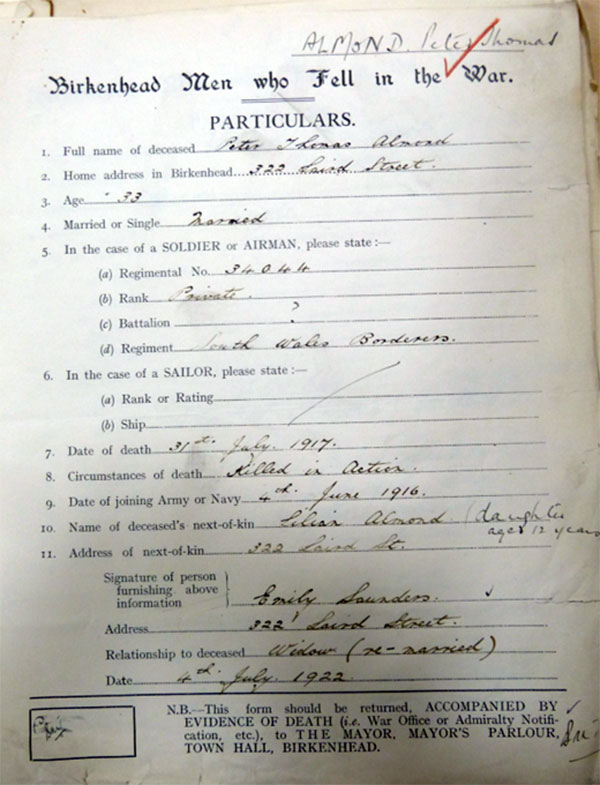 ALMOND. Peter Thomas
Birkenhead Men who Fell in the War.
PARTICULARS.
1. Full name of deceased Peter Thomas Almond
2. Home address in Birkenhead 322 Laird Street.
3. Age 33
4. Married or Single Married
5. In the case of a SOLDIER or AIRMAN, please state :—
(a) Regimental No. 34044
(b) Rank Private.
(c) Battalion ?
(d) Regiment South Wales Borderers.
6. In the case of a SAILOR, please state :—
(a) Rank or Rating
(b) Ship
7. Date of death 31st July. 1917.
8. Circumstances of death Killed in Action.
9. Date of joining Army or Navy 4th June 1916.
10. Name of deceased's next-of-kin Lilian Almond. (daughter
aged 12 years
11. Address of next-of-kin 322 Laird St.
Signature of person
furnishing above
information } Emily Saunders.
Address 322 Laird Street.
Relationship to deceased Widow (re-married)
Date 4th July. 1922
N.B.—This form should be returned, ACCOMPANIED BY
EVIDENCE OF DEATH (i.e. War Office or Admiralty Notifi-
cation, etc.), to THE MAYOR, MAYOR'S PARLOUR,
TOWN HALL, BIRKENHEAD.